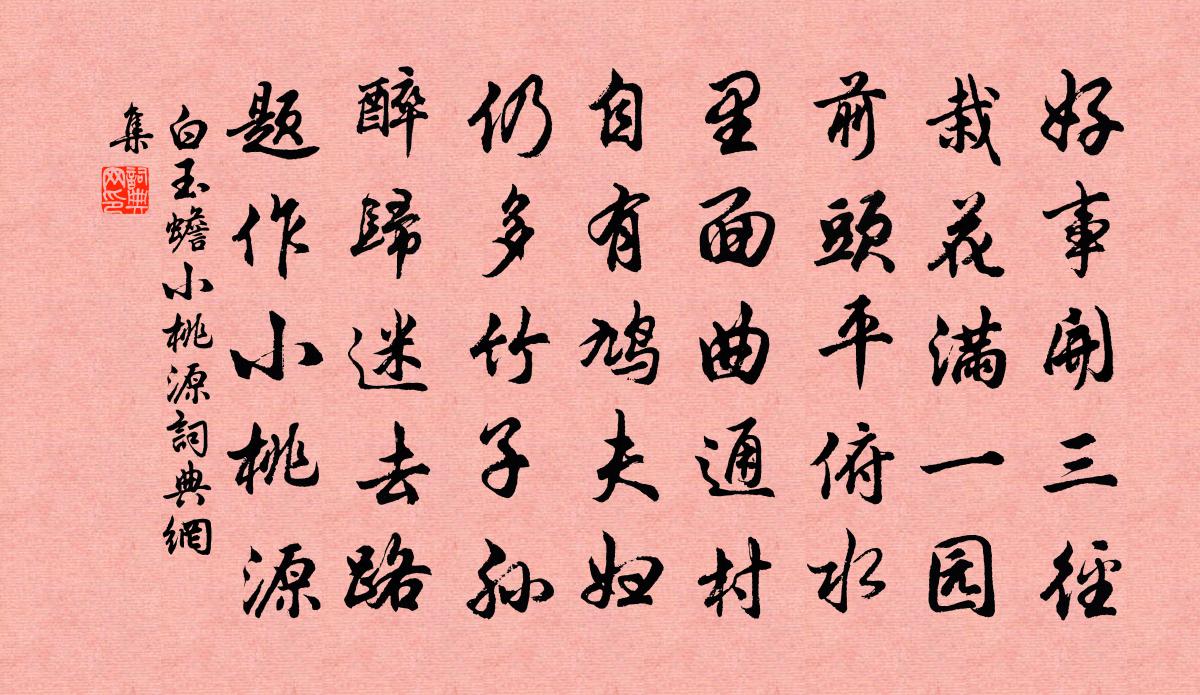 好事開三徑
栽花满一园
前頭平俯水
里面曲通村
自有鸠夫妇
仍多竹子孙
醉歸迷去路
题作小桃源
白玉蟾小桃源詞典網
集
詞典
网印